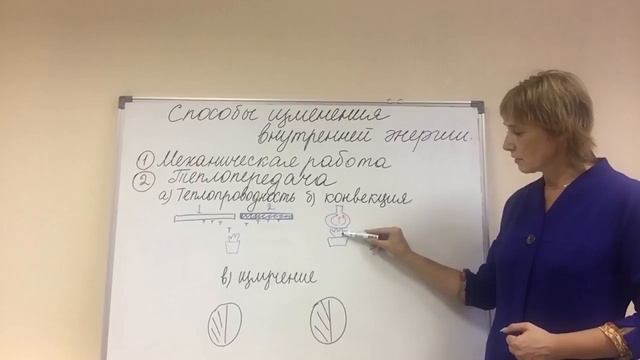 Способы изменения
внутренней энергии.
① Механическая работа
② Теплопередача
а) Теплопроводность б) конвекция
1 2
т т т т т т т
т
в) излучение